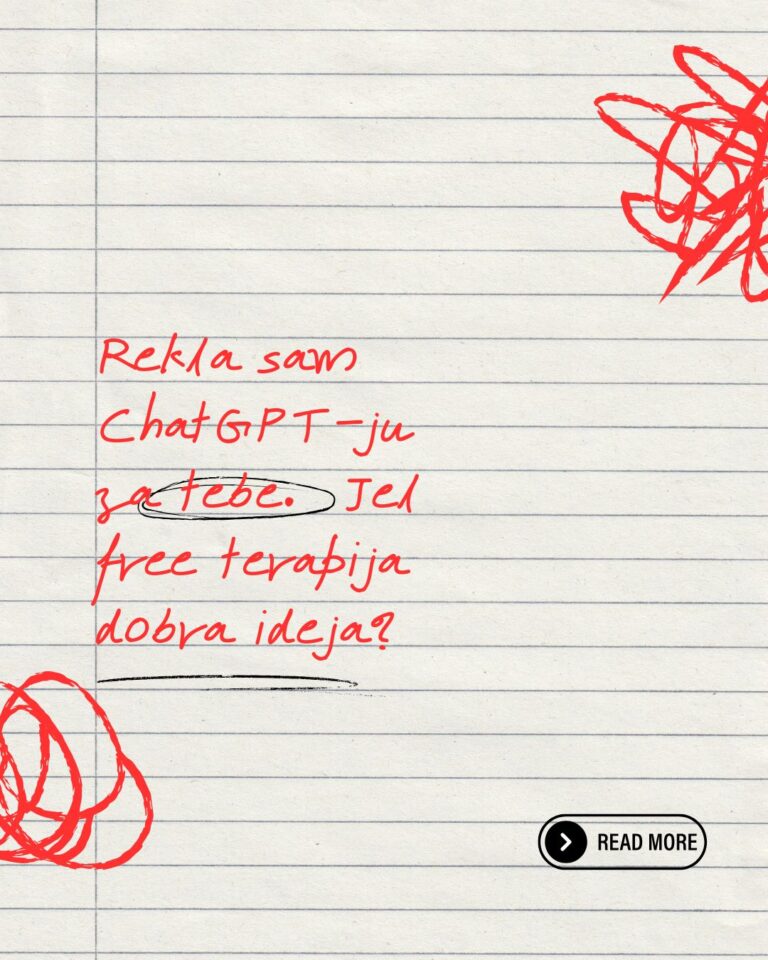 Rekla sam
ChatGPT-ju
za tebe. Jel
free terapija
dobra ideja?
READ MORE